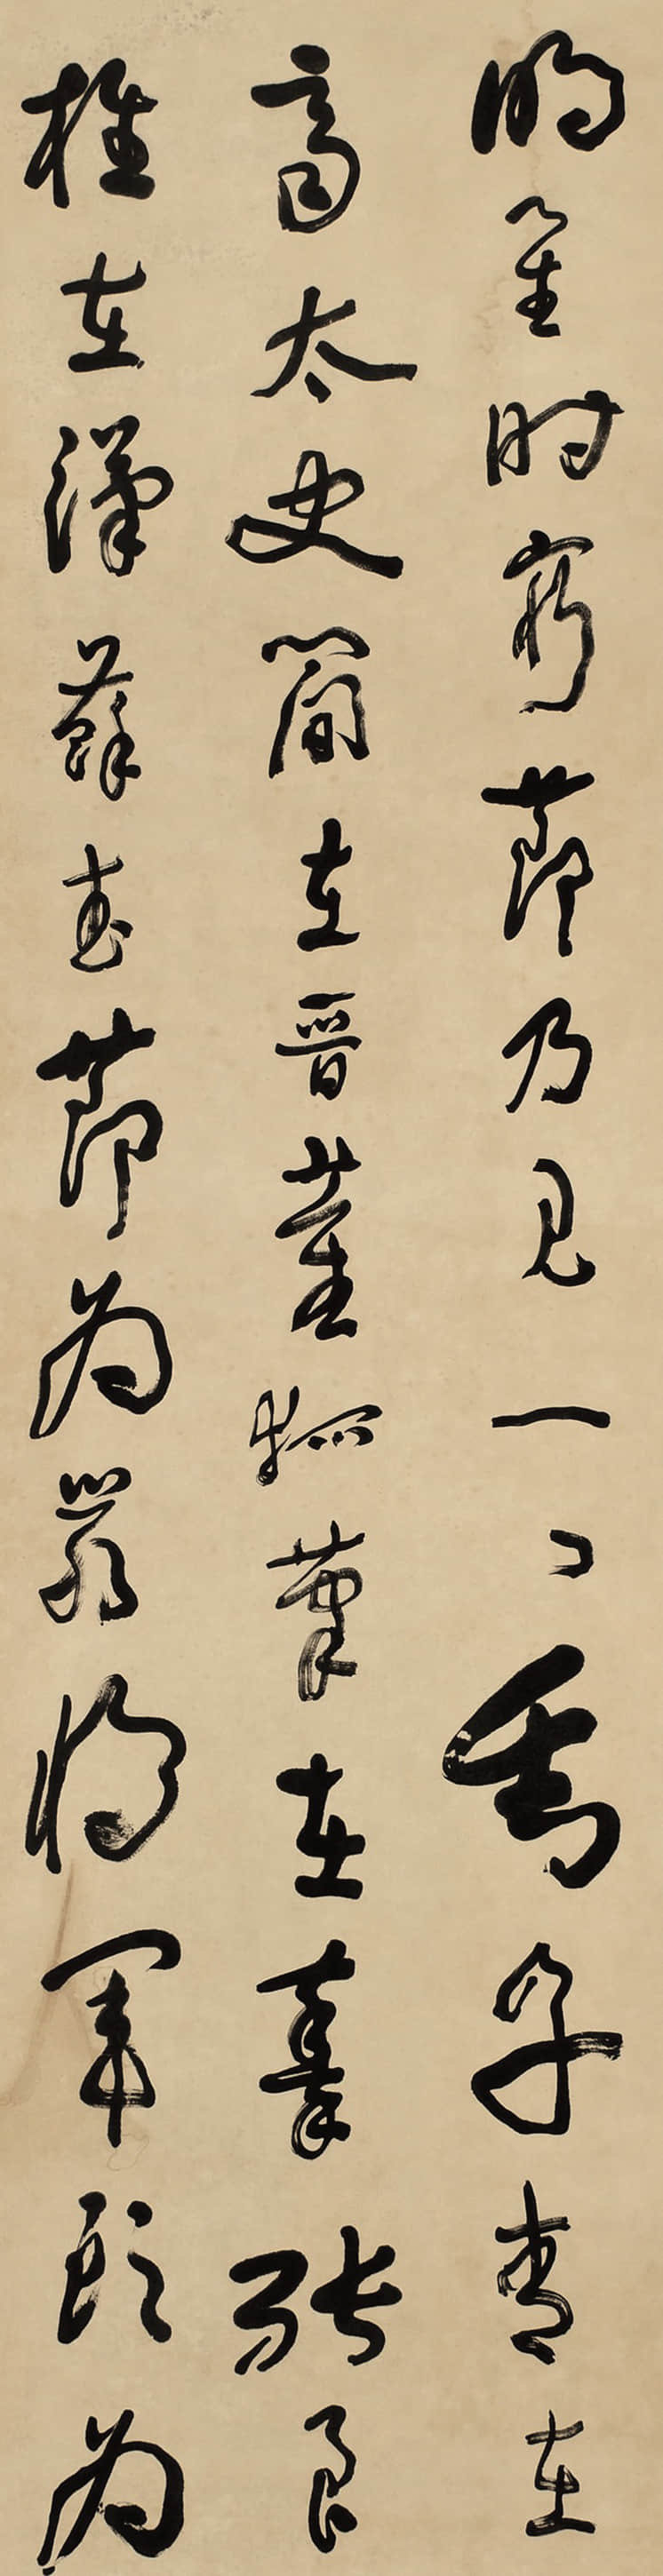 明庭時窮節乃見一々垂丹青在
齊太史簡在晉董狐筆在秦張良
椎在漢蘇武節為嚴將軍頭為